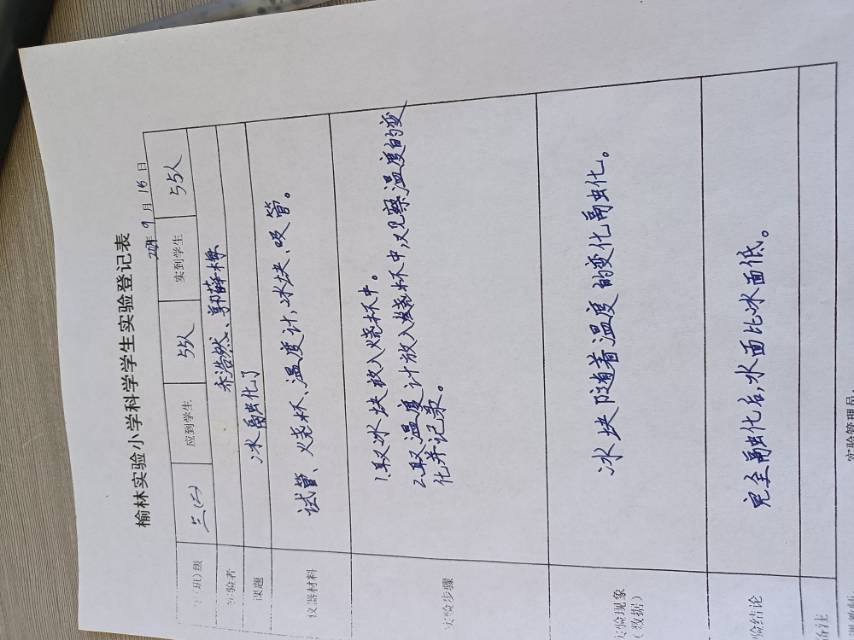 榆林实验小学科学学生实验登记表
年 9 月 16 日
班)级 三(二) 应到学生 55人 实到学生 55人
实验者 乔浩然、郭薛梅
课题 冰融化了
仪器材料 试管、烧杯、温度计,冰块、吸管。
实验步骤 1.取冰块放入烧杯中。
2.取温度计放入烧杯中,观察温度的变
化并记录。
实验现象 冰块随着温度的变化融化。
(数据)
验结论 完全融化后,水面比冰面低。
备注
实验管理员: